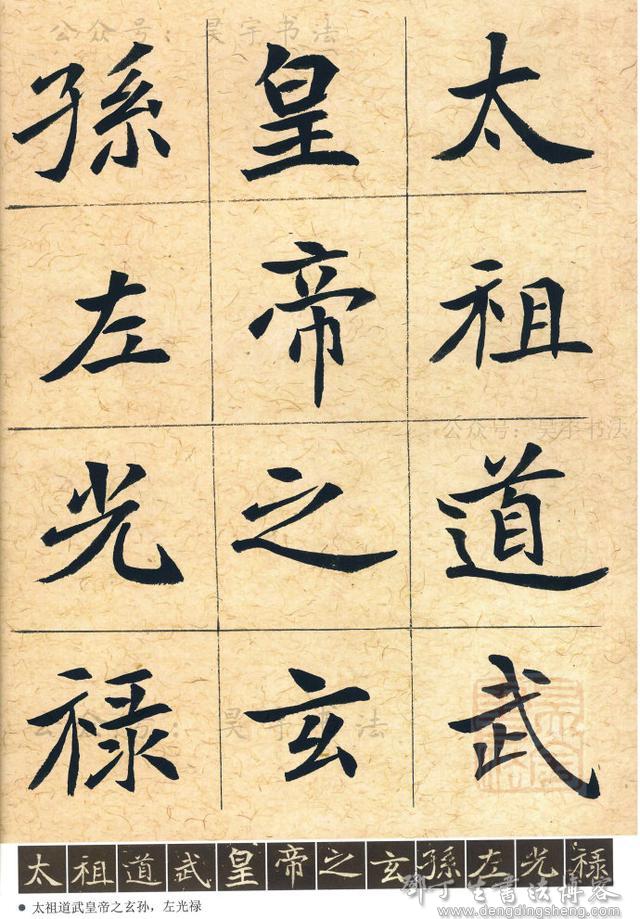 公众号：昊宇书法
太祖道武
皇帝之玄
孫左光禄
公众号：昊宇书法
公众号：昊宇书法
太祖道武皇帝之玄孫左光禄
太祖道武皇帝之玄孙，左光禄
邓丁生书法博客
www.dengdingsheng.com